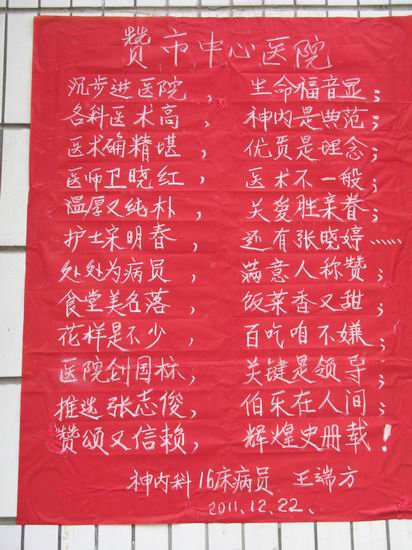 赞市中心医院
沉步进医院，生命福音显；
各科医术高，神内是典范；
医术确精堪，优质是理念；
医师卫晓红，医术不一般；
温厚又纯朴，关爱胜亲眷；
护士宋明春，还有张晓婷……
处处为病员，满意人称赞；
食堂美名落，饭菜香又甜；
花样是不少，百吃咱不嫌；
医院创国标，关键是领导；
推选张志俊，伯乐在人间；
赞颂又信赖，辉煌史册载！
神内科16床病员 王端方
2011.12.22.